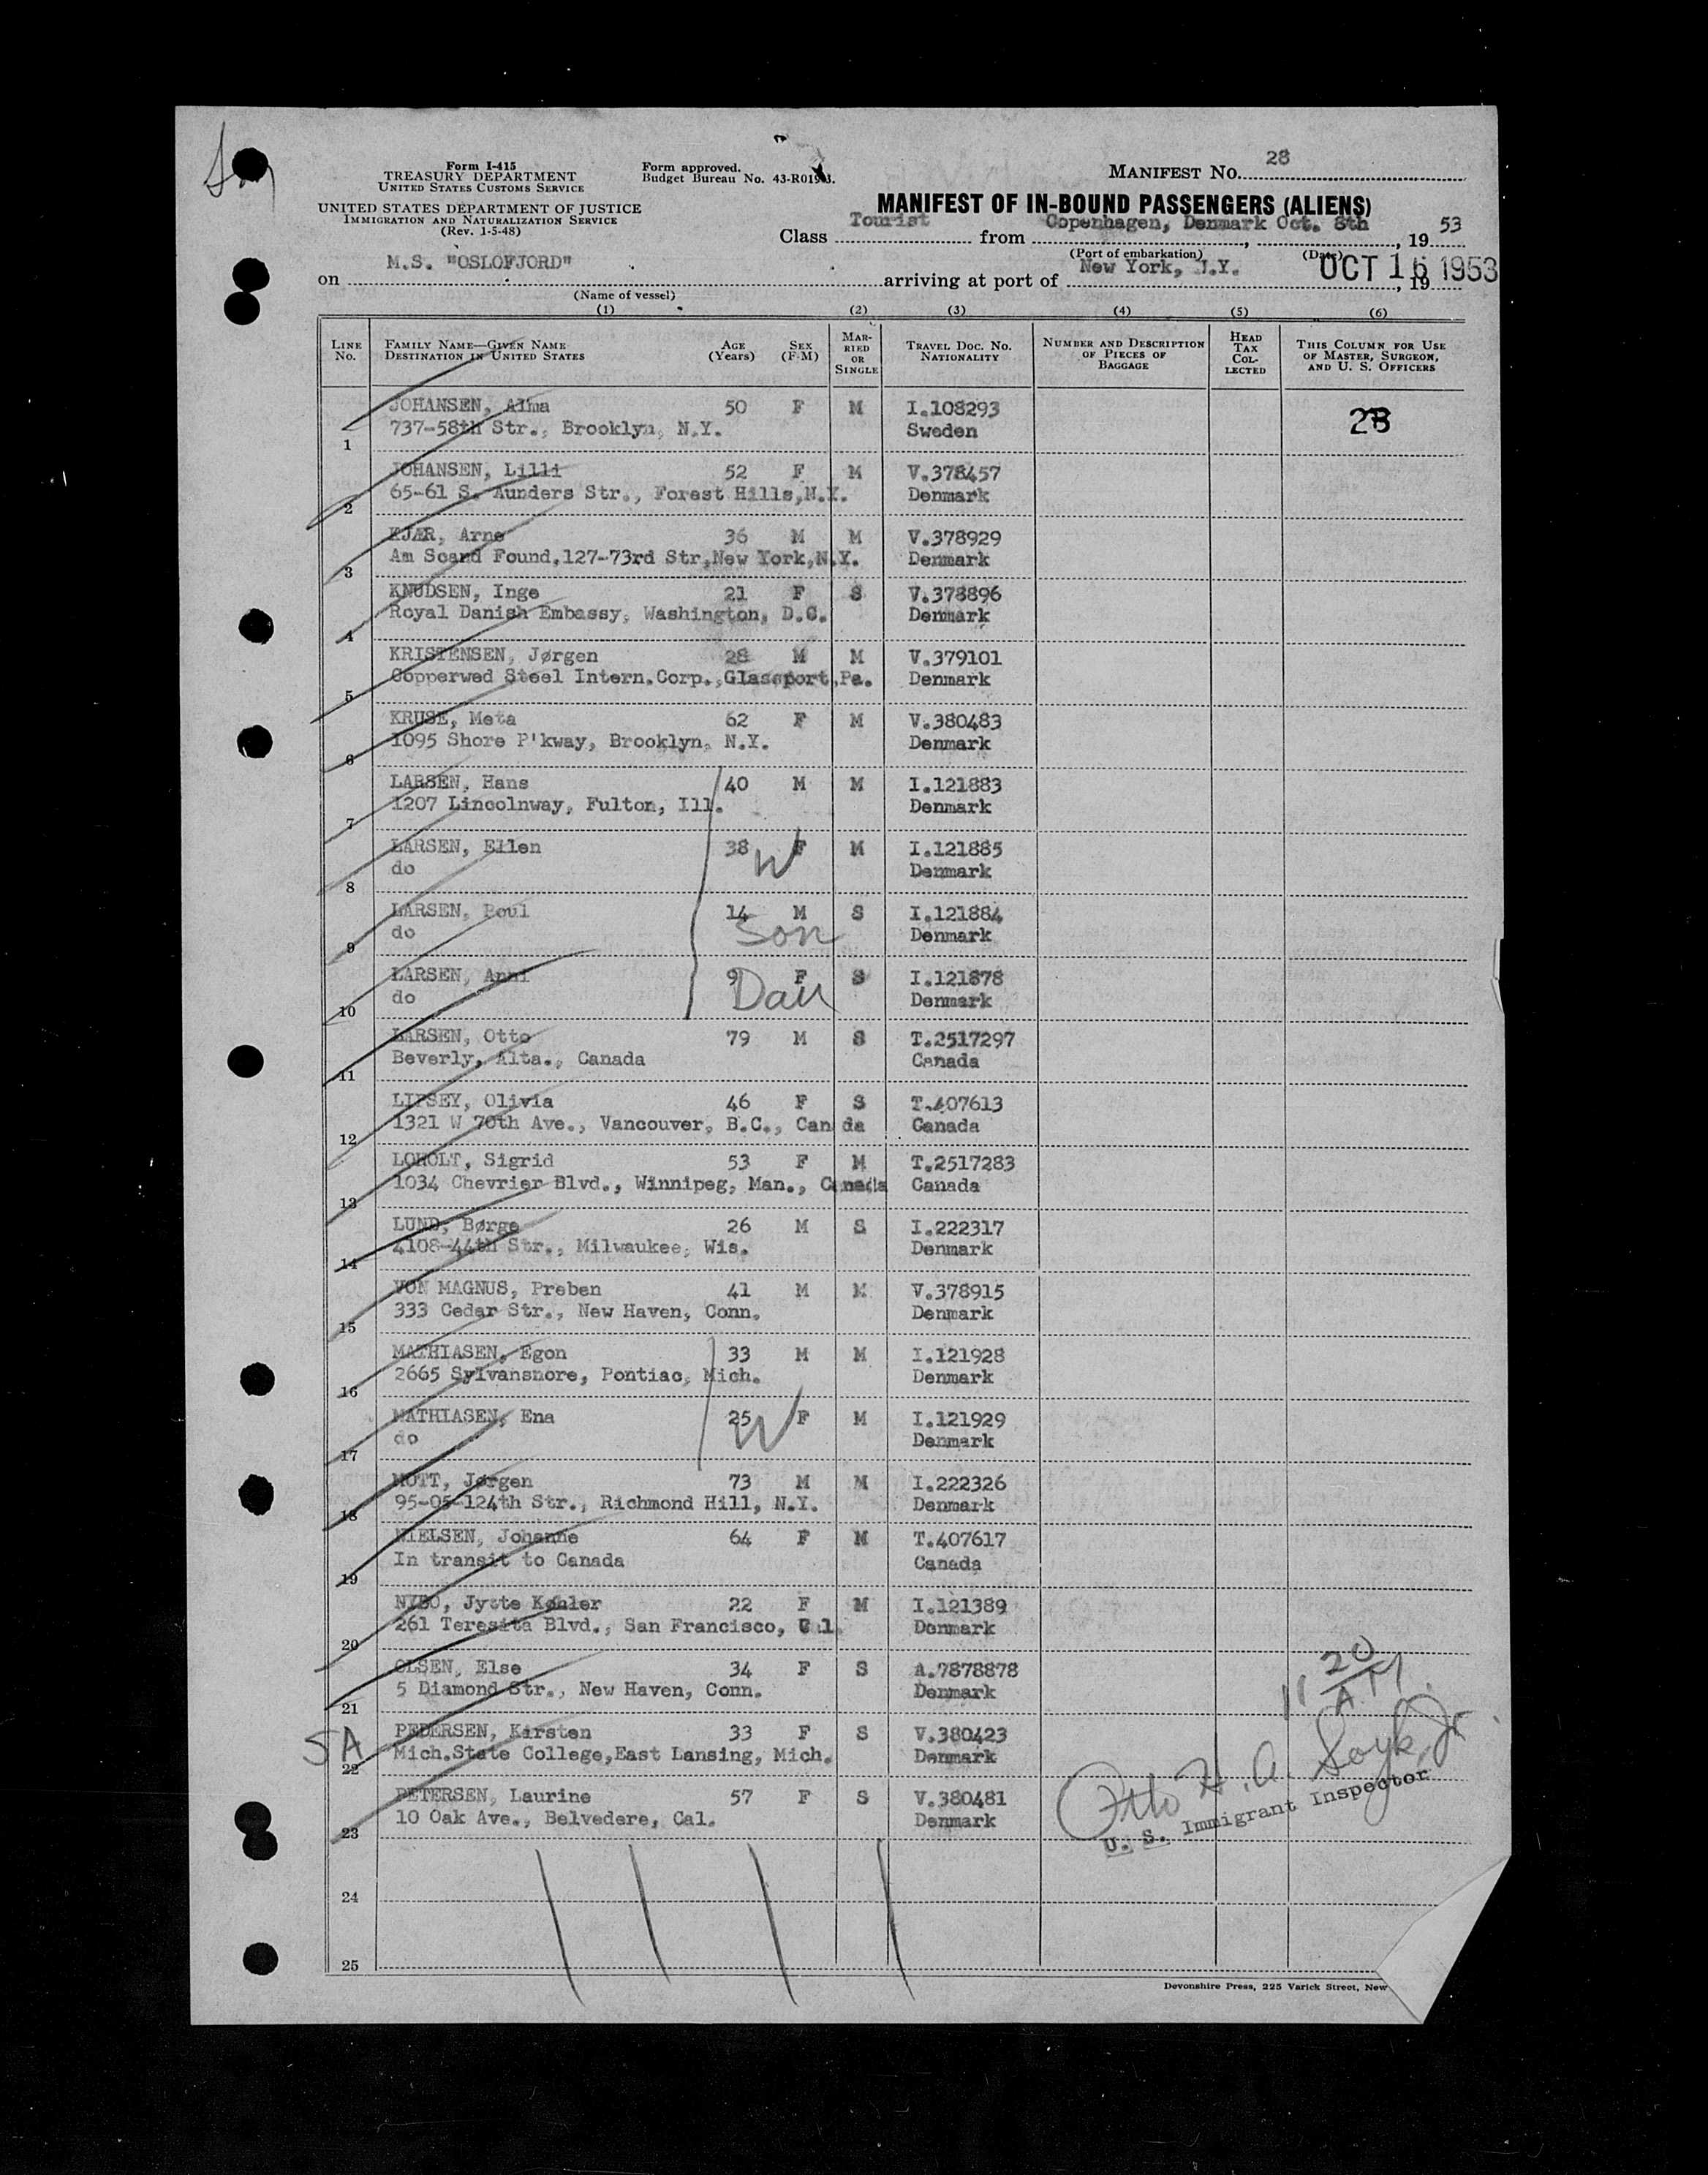 Form I-415
TREASURY DEPARTMENT
UNITED STATES CUSTOMS SERVICE
UNITED STATES DEPARTMENT OF JUSTICE
IMMIGRATION AND NATURALIZATION SERVICE
(Rev. 1-5-48)
Form approved.
Budget Bureau No. 43-R0193.
MANIFEST NO. 28
MANIFEST OF IN-BOUND PASSENGERS (ALIENS)
Class Tourist from Copenhagen, Denmark Oct. 8th, 19 53
(Port of embarkation) (Date)
on M.S. "OSLOFJORD" arriving at port of New York, N.Y. OCT 16 1953, 19
(Name of vessel)
(1) (2) (3) (4) (5) (6)
LINE No. FAMILY NAME—GIVEN NAME DESTINATION IN UNITED STATES AGE (Years) SEX (F-M) MARRIED OR SINGLE TRAVEL DOC. NO. NATIONALITY NUMBER AND DESCRIPTION OF PIECES OF BAGGAGE HEAD TAX COLLECTED THIS COLUMN FOR USE OF MASTER, SURGEON, AND U. S. OFFICERS
JOHANSEN, Alma 50 F M I.108293
1 737-58th Str., Brooklyn, N.Y. Sweden
JOHANSEN, Lilli 52 F M V.378457
2 65-61 S. Aunders Str., Forest Hills,N.Y. Denmark
KJÆR, Arne 36 M M V.378929
3 Am Scand Found,127-73rd Str,New York,N.Y. Denmark
KNUDSEN, Inge 21 F S V.378896
4 Royal Danish Embassy, Washington, D.C. Denmark
KRISTENSEN, Jørgen 28 M M V.379101
5 Copperwed Steel Intern.Corp.,Glassport,Pa. Denmark
KRUSE, Meta 62 F M V.380483
6 1095 Shore P'kway, Brooklyn, N.Y. Denmark
LARSEN, Hans 40 M M I.121883
7 1207 Lincolnway, Fulton, Ill. Denmark
LARSEN, Ellen 38 F M I.121885
8 do W Denmark
LARSEN, Poul 14 M S I.121884
9 do Son Denmark
LARSEN, Anni 9 F S I.121878
10 do Dau Denmark
LARSEN, Otto 79 M S T.2517297
11 Beverly, Alta., Canada Canada
LIPSEY, Olivia 46 F S T.407613
12 1321 W 70th Ave., Vancouver, B.C., Canada Canada
LOHOLT, Sigrid 53 F M T.2517283
13 1034 Chevrier Blvd., Winnipeg, Man., Canada Canada
LUND, Børge 26 M S I.222317
14 4108-44th Str., Milwaukee, Wis. Denmark
VON MAGNUS, Preben 41 M M V.378915
15 333 Cedar Str., New Haven, Conn. Denmark
MATHIASEN, Egon 33 M M I.121928
16 2665 Sylvansnore, Pontiac, Mich. Denmark
MATHIASEN, Ena 25 F M I.121929
17 do W Denmark
MOTT, Jørgen 73 M M I.222326
18 95-05-124th Str., Richmond Hill, N.Y. Denmark
NIELSEN, Johanne 64 F M T.407617
19 In transit to Canada Canada
NYBO, Jytte Køhler 22 F M I.121389
20 261 Teresita Blvd., San Francisco, Cal. Denmark
OLSEN, Else 34 F S A.7878878
21 5 Diamond Str., New Haven, Conn. Denmark
PEDERSEN, Kirsten 33 F S V.380423
SA 22 Mich.State College,East Lansing, Mich. Denmark
PETERSEN, Laurine 57 F S V.380481
23 10 Oak Ave., Belvedere, Cal. Denmark
11 20 AM
U. S. Immigrant Inspector
24
25
Devonshire Press, 225 Varick Street, New